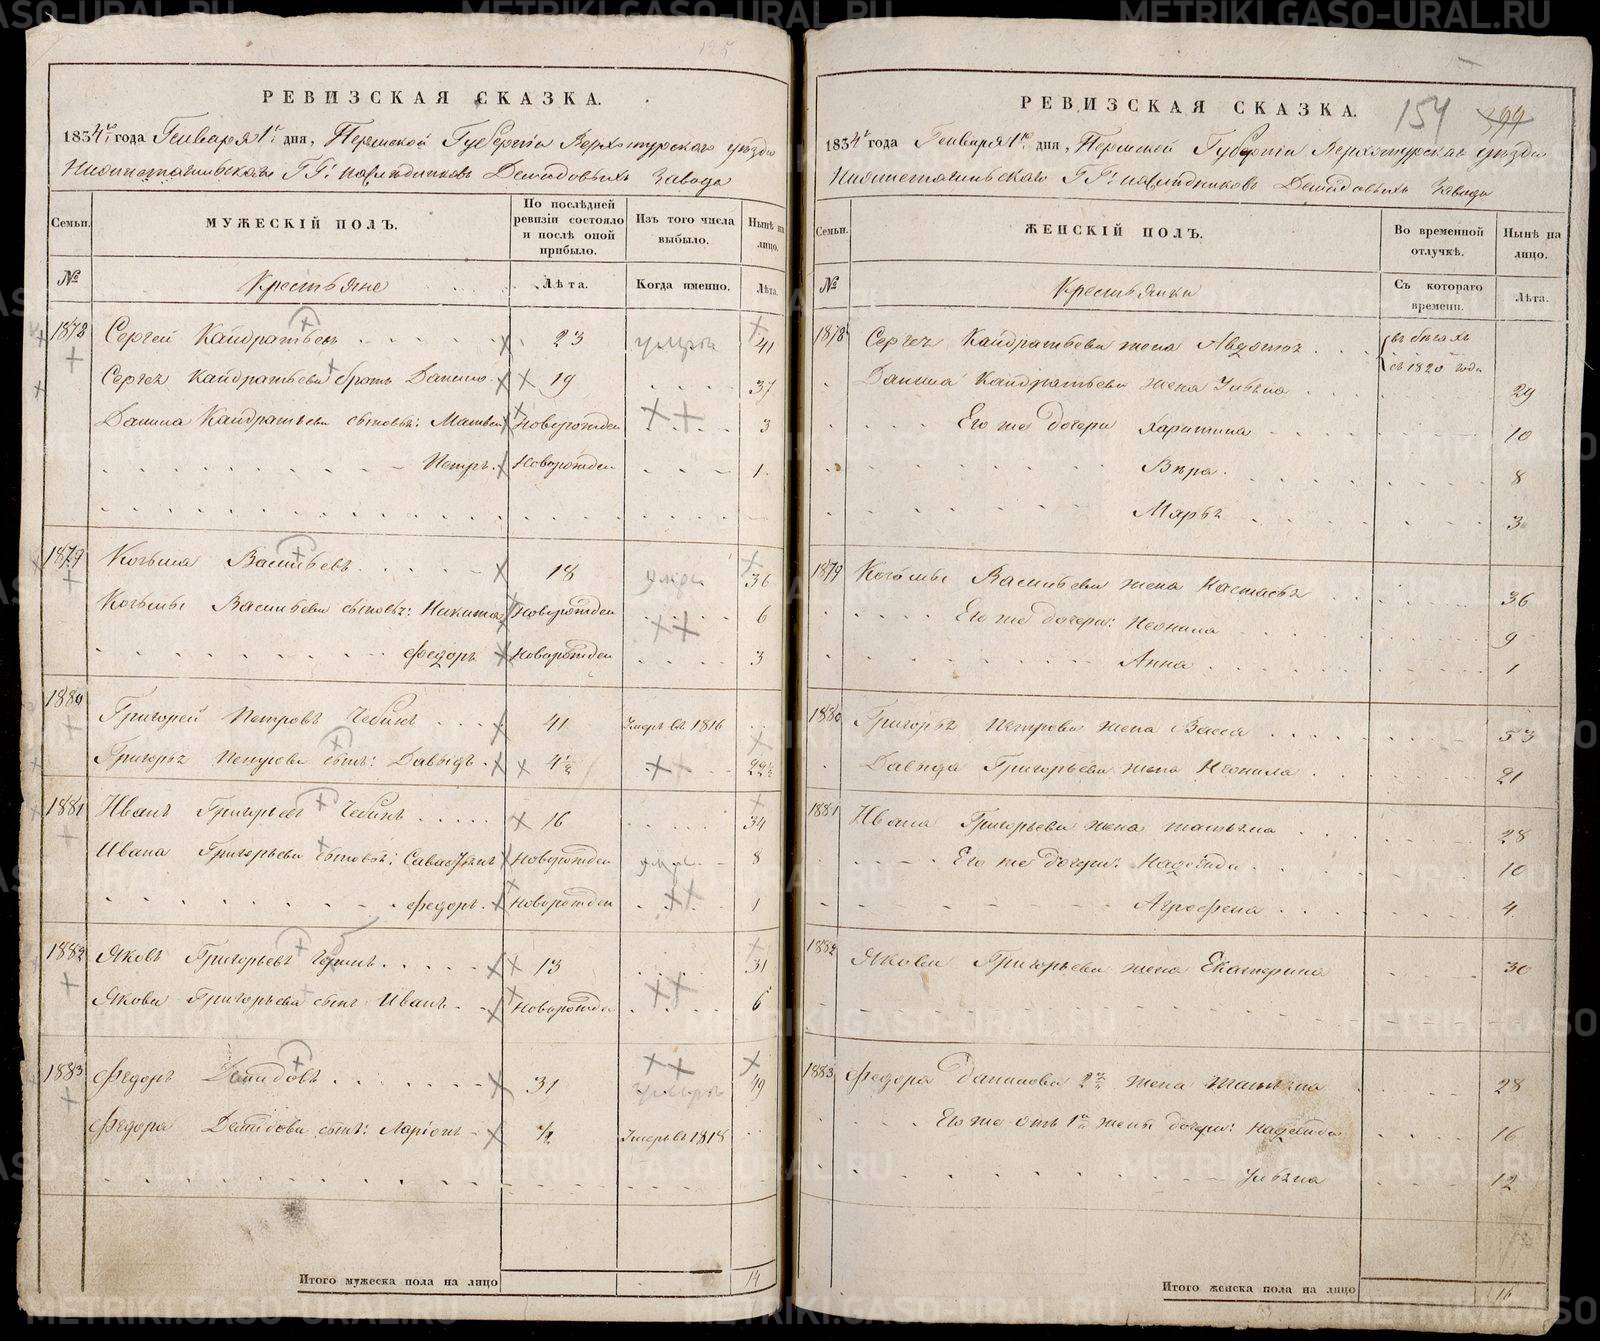 125
РЕВИЗСКАЯ СКАЗКА.
1834 года Генваря 1 дня, Пермской Губернiи Верхотурскаго уѣзда
Нижнетагильскаго ГГ. наслѣдниковъ Демидовыхъ Завода
Семьи. МУЖЕСКIЙ ПОЛЪ. По послѣдней ревизiи состояло и послѣ оной прибыло. Изъ того числа выбыло. Нынѣ на лицо.
№ Крестьяне Лѣта. Когда именно. Лѣта.
1878 Сергей Кайдратьевъ 23 умеръ 41
Сергея Кайдратьева братъ Данило 19 37
Данила Кайдратьева сыновья: Матвей Новорожден 3
Петръ Новорожден 1
1879 Козьма Васильевъ 18 умер 36
Козьмы Васильева сыновья: Никита Новорожден 6
Федоръ Новорожден 3
1880 Григорей Петровъ Чебинъ 41 Умеръ въ 1816
Григорья Петрова сынъ: Давыдъ 4½ 22½
1881 Иванъ Григорьевъ Чебинъ 16 34
Ивана Григорьева сыновья: Савастьянъ Новорожден 8
Федоръ Новорожден 1
1882 Яковъ Григорьевъ 13 31
Якова Григорьева сынъ Иванъ Новорожден 6
1883 Федоръ Демидовъ 31 умеръ 49
Федора Демидова сынъ: Ларiонъ ½ Умеръ въ 1818
Итого мужеска пола на лицо 14
154 399
РЕВИЗСКАЯ СКАЗКА.
1834 года Генваря 1 дня, Пермской Губернiи Верхотурскаго уѣзда
Нижнетагильскаго ГГ. наслѣдниковъ Демидовыхъ Завода
Семьи. ЖЕНСКIЙ ПОЛЪ. Во временной отлучкѣ. Нынѣ на лицо.
№ Крестьянки Съ котораго времени. Лѣта.
1878 Сергея Кайдратьева жена Авдотья въ бѣгахъ съ 1820 года
Данила Кайдратьева жена Ульяна 29
Его же дочери Харитина 10
Вѣра 8
Марья 3
1879 Козьмы Васильева жена Настасья 36
Его же дочери: Неонила 9
Анна 1
1880 Григорья Петрова жена Васса 53
Давыда Григорьева жена Неонила 21
1881 Ивана Григорьева жена татьяна 28
Его же дочери: Надежда 10
Агрофена 4
1882 Якова Григорьева жена Екатерина 30
1883 Федора 2я жена татьяна 28
Его же отъ 1й жены дочери: Надежда 16
Ульяна 12
Итого женска пола на лицо 16
METRIKI.GASO-URAL.RU